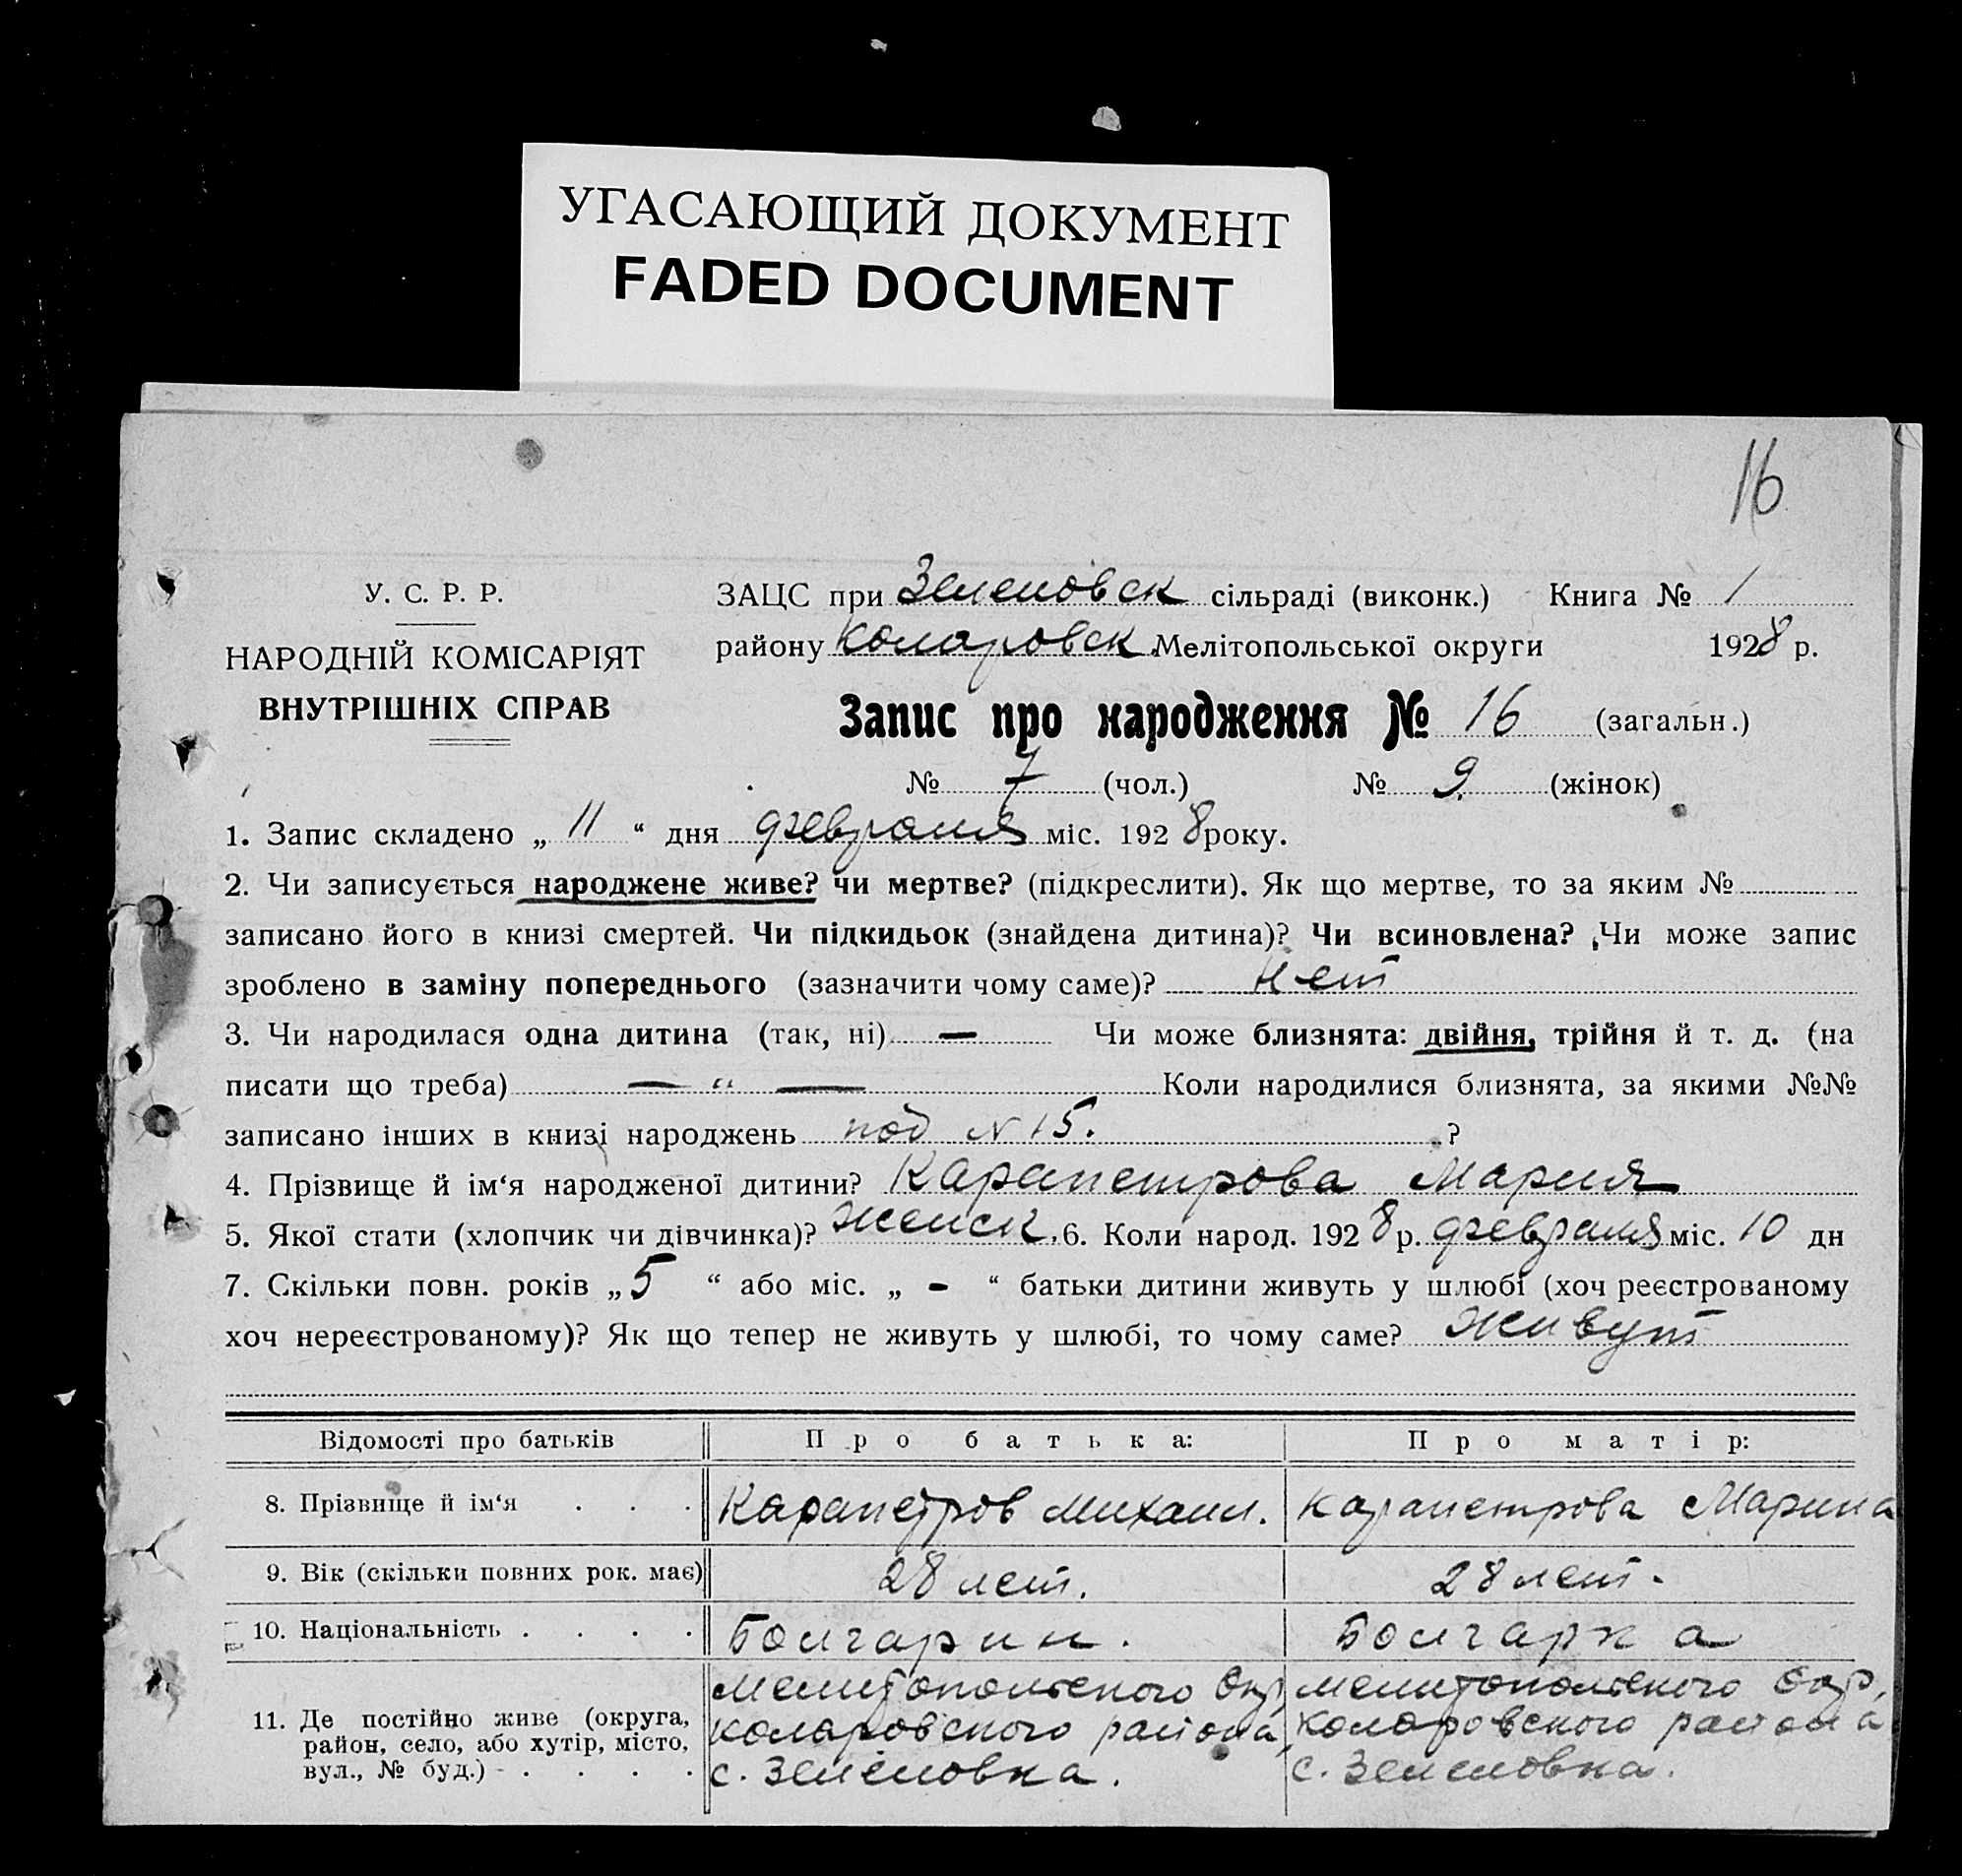 УГАСАЮЩИЙ ДОКУМЕНТ
FADED DOCUMENT
16
У. С. Р. Р.
НАРОДНІЙ КОМІСАРІЯТ
ВНУТРІШНІХ СПРАВ
ЗАЦС при Зеленовск сільраді (виконк.) Книга № 1
району Коларовск Мелітопольської округи 1928 р.
Запис про народження № 16 (загальн.)
№ 7 (чол.) № 9. (жінок)
1. Запис складено „ 11 “ дня февраля міс. 1928 року.
2. Чи записується народжене живе? чи мертве? (підкреслити). Як що мертве, то за яким №
записано його в книзі смертей. Чи підкидьок (знайдена дитина)? Чи всиновлена? Чи може запис
зроблено в заміну попереднього (зазначити чому саме)? нет
3. Чи народилася одна дитина (так, ні) — Чи може близнята: двійня, трійня й т. д. (на
писати що треба) — “ — Коли народилися близнята, за якими №№
записано інших в книзі народжень под N 15. ?
4. Прізвище й ім‘я народженої дитини? Карапетрова Мария
5. Якої стати (хлопчик чи дівчинка)? женск. 6. Коли народ. 1928 р. февраля міс. 10 дн
7. Скільки повн. років „ 5 “ або міс. „ - “ батьки дитини живуть у шлюбі (хоч реєстрованому
хоч нереєстрованому)? Як що тепер не живуть у шлюбі, то чому саме? живут
Відомості про батьків Про батька: Про матір:
8. Прізвище й ім‘я . . . Карапетров Михаил. Карапетрова Марина
9. Вік (скільки повних рок. має) 28 лет. 28 лет.
10. Національність . . . . Болгарин. Болгарка
11. Де постійно живе (округа, Мелитопольского Окр, Мелитопольского Окр,
район, село, або хутір, місто, Коларовского района, Коларовского района
вул., № буд.) - . . . . с. Зеленовка. с. Зеленовка.